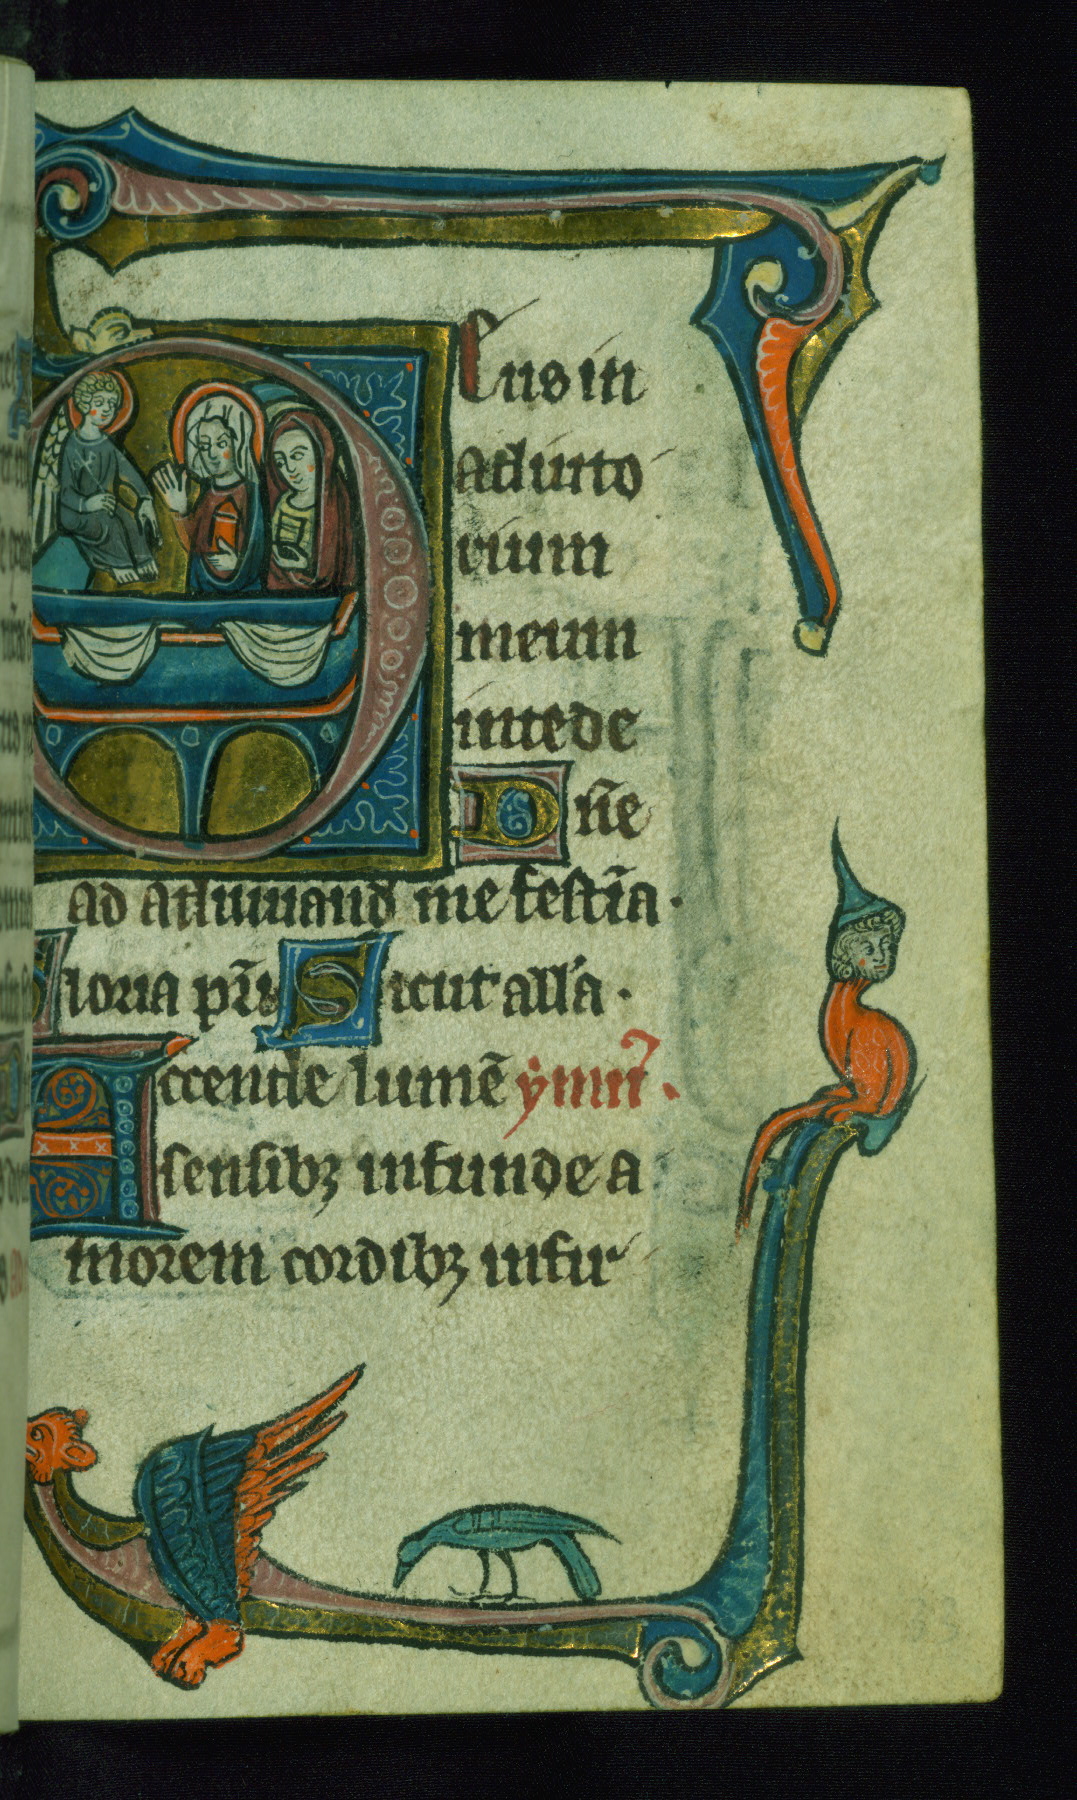 Deus in
adiuto
rium
meum
intēde
Dn̄e
ad adiuuand me festīa.
Gloria pr̄i Sicut all'a.
Accende lumē ymn̄.
sensibꝫ infunde a
morem cordibꝫ infir